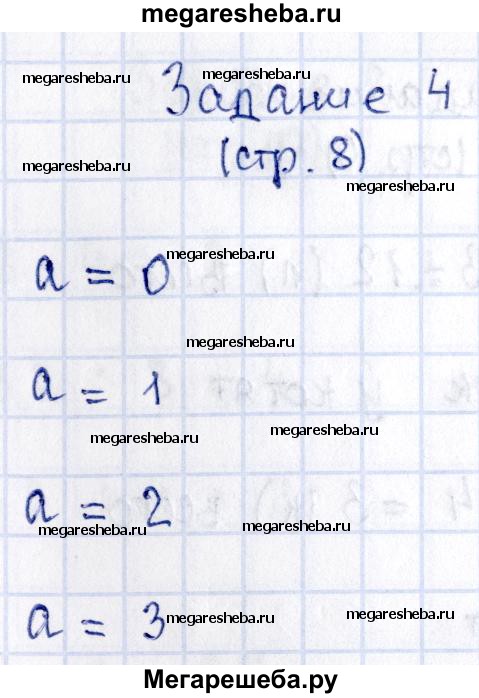 megaresheba.ru
megaresheba.ru megaresheba.ru
Задание 4
megaresheba.ru
(стр. 8)
megaresheba.ru
megaresheba.ru
a = 0
megaresheba.ru
a = 1
megaresheba.ru
megaresheba.ru
a = 2
megaresheba.ru megaresheba.ru
a = 3
megaresheba.ru megaresheba.ru
Мегарешеба.ру